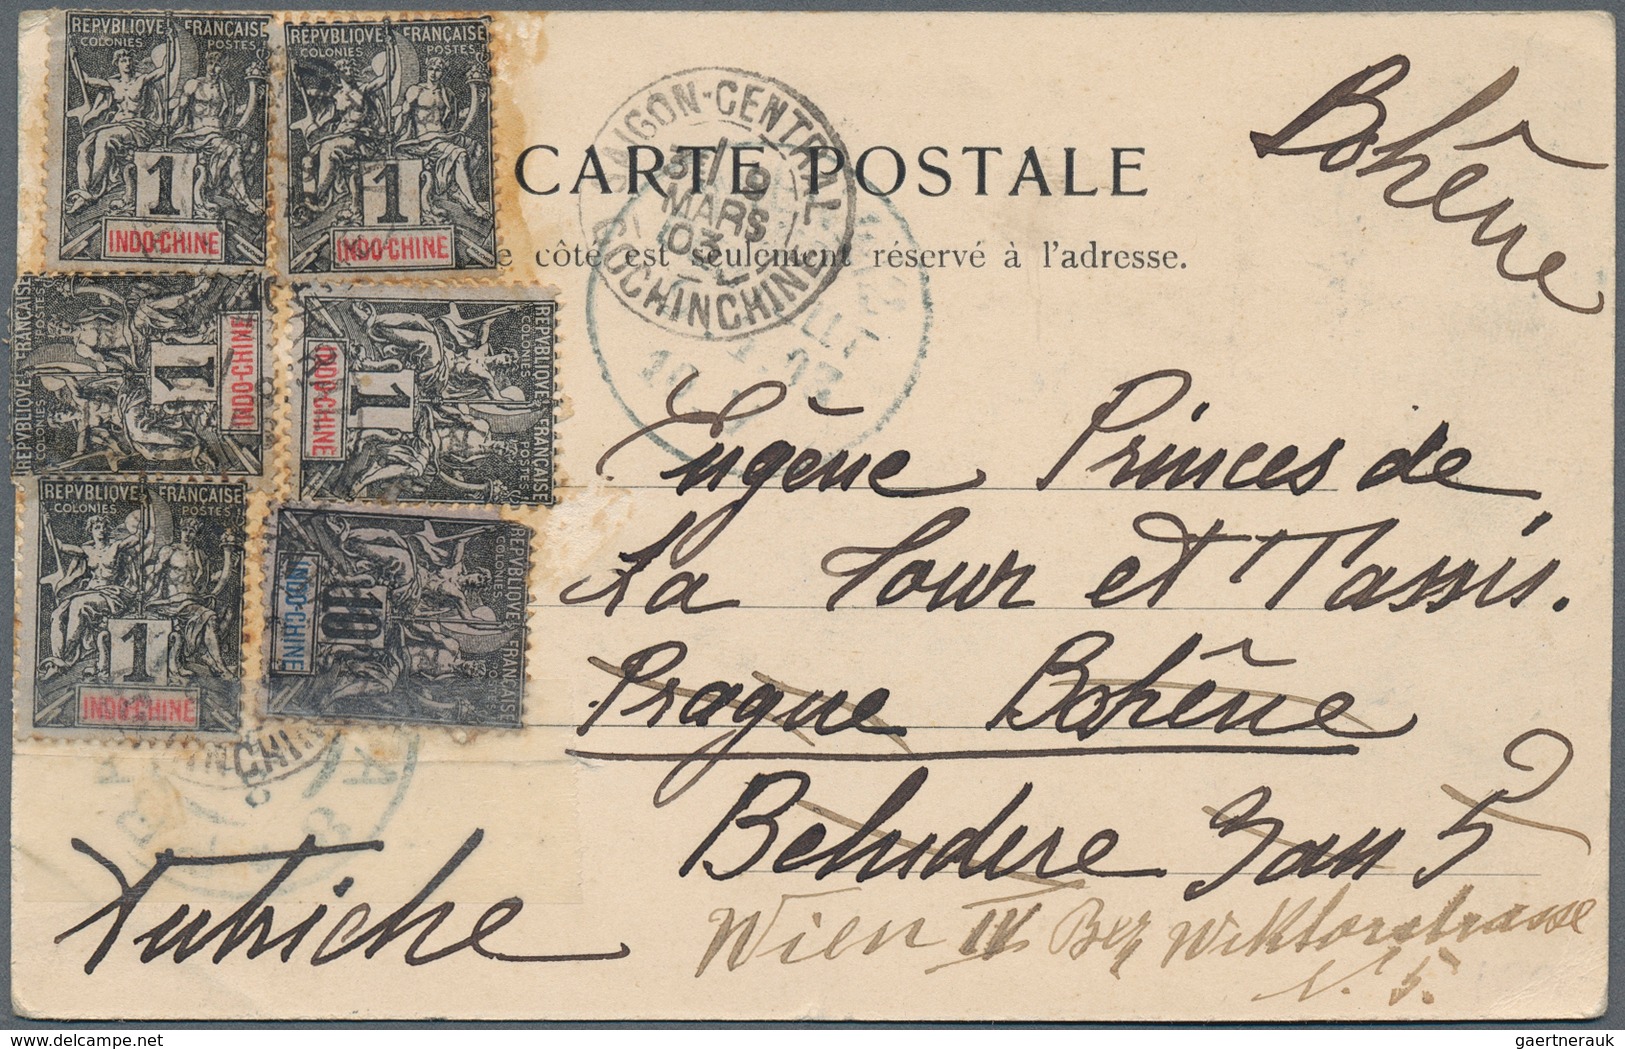 REPVBLIQUE FRANÇAISE
COLONIES POSTES
1
INDO-CHINE
REPVBLIQUE FRANÇAISE
COLONIES POSTES
1
INDO-CHINE
REPVBLIQUE FRANÇAISE
COLONIES POSTES
1
INDO-CHINE
REPVBLIQUE FRANÇAISE
COLONIES POSTES
1
INDO-CHINE
REPVBLIQUE FRANÇAISE
COLONIES POSTES
1
INDO-CHINE
REPVBLIQUE FRANÇAISE
COLONIES POSTES
10
INDO-CHINE
SAIGON-CENTRAL
9
MARS
03
COCHINCHINE
CARTE POSTALE
côté est seulement réservé à l'adresse.
Bohême
Eugène Princes de
La Tour et Tassis.
Prague Bohême
Belvidere 5
Wien IV Bez Wiktorstrasse
N. 5.
Autriche
delcampe.net
gaertnerauk